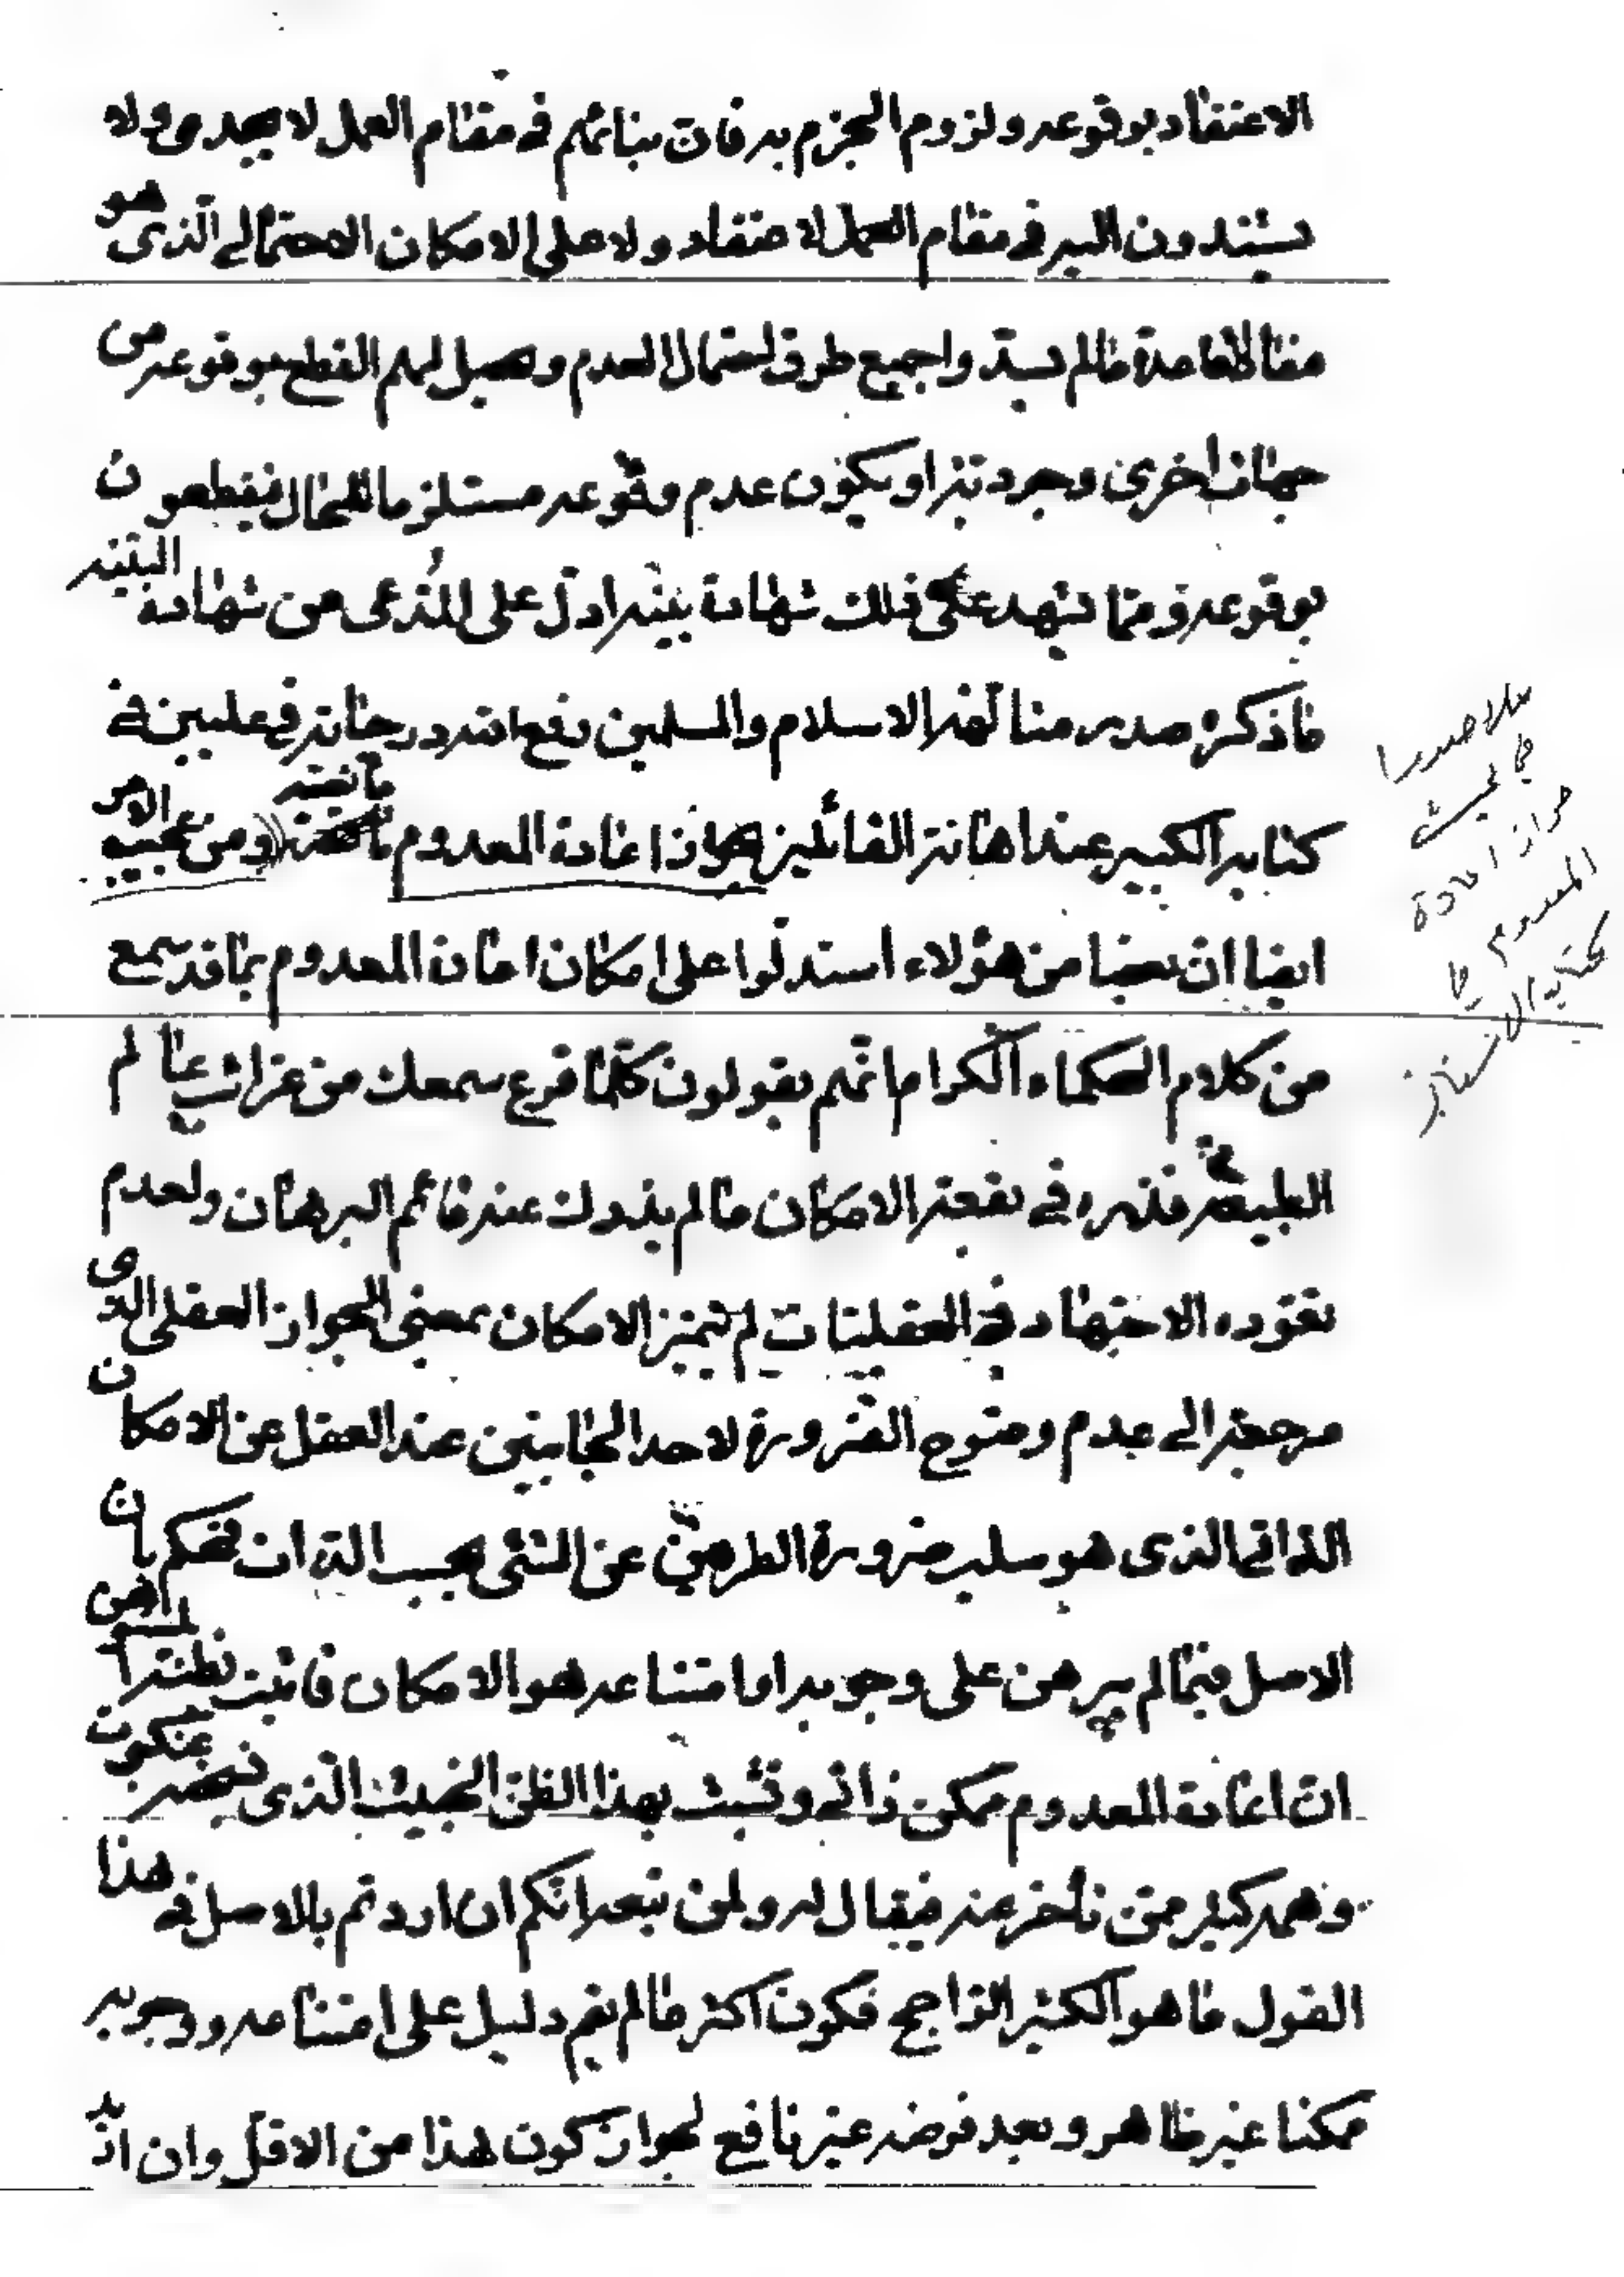 الاعتقاد بوقوعه ولزوم الجزم به فان بنائهم فى مقام العمل لا يجدى ولا
يستندون اليه فى مقام العمل لاعتقاد ولا على الامكان الاحتمالى الذى هو
مفاد القاعدة ما لم يسدوا جميع طرق احتمال العدم وحصل لهم القطع بوقوعه من
جهات اخرى وجودية او يكون عدم وقوعه مستلزما للمحال فيقطعون
بوقوعه ومما يشهد على ذلك شهادة بينة ادل على المدعى من شهادة البينة
ما ذكره صدر متألهة الاسلام والمسلمين رفع الله درجاته فى عليين فى
كتابه الكبير عند اهانة القائلين بجواز اعادة المعدوم ما نصه ((ومن عجيب الامر
ايضا ان بعضا من هؤلاء استدلوا على امكان اعادة المعدوم بما قد سمع
من كلام الحكماء الكرام انهم يقولون كلما قرع سمعك من غرائب عالم
الطبيعة فذره فى بقعة الامكان ما لم يذدك عنه قائم البرهان ولعدم
تعوده الاجتهاد فى العقليات لم يتميز الامكان بمعنى الجواز العقلى الذى
مرجعه الى عدم وضوح الضرورة لاحد الجانبين عند العقل عن الامكان
الذاتى الذى هو سلب ضرورة الطرفين عن الشئ بحسب الذات فحكم بان
الاصل فيما لم يبرهن على وجوبه او امتناعه هو الامكان فاثبت بظنه
ان اعادة المعدوم ممكن ذاتى وتشبث بهذا الظن الخبيث الذى
وهمه كثير ممن تأخر عنه فيقال له ولمن تبعه انكم ان اردتم بالاصل فى هذا
القول ما هو الكثير الراجح فكون اكثر ما لم يقم دليل على امتناعه ووجوبه
ممكنا غير ظاهر وبعد فرضه غير نافع لجواز كون هذا من الاقل وان اريد
ملا صدرا
جواز اعادة
المعدوم